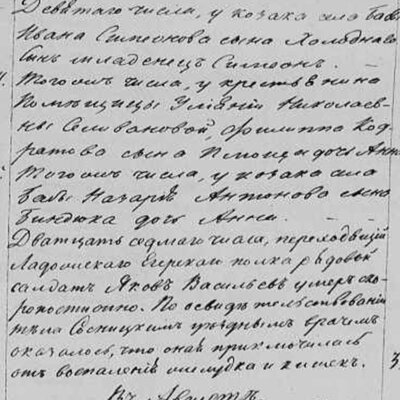 Девятаго числа, у козака села Бабы
Ивана Симеонова сына Холоднаго
сынъ младенецъ Симеонъ.
Тогожъ числа, у крестьянина
Помѣщицы Николаев-
ны Селивановой, Филиппа Код-
ратова сына дочь Анна
Тогожъ числа, у козака села
Бабы Назарія Антонова сына
Биндюка дочь Анна.
Дватцать седмаго числа, переходящій
Ладожскаго Егерскаго полка рядовой
солдатъ Яковъ Васильевъ умеръ ско-
ропостижно. По освидѣтельствованіи
тѣла Сосницкимъ уѣзднымъ врачемъ
оказалось, что онай приключилась
отъ воспаленія желудка и кишекъ.
Въ Августѣ